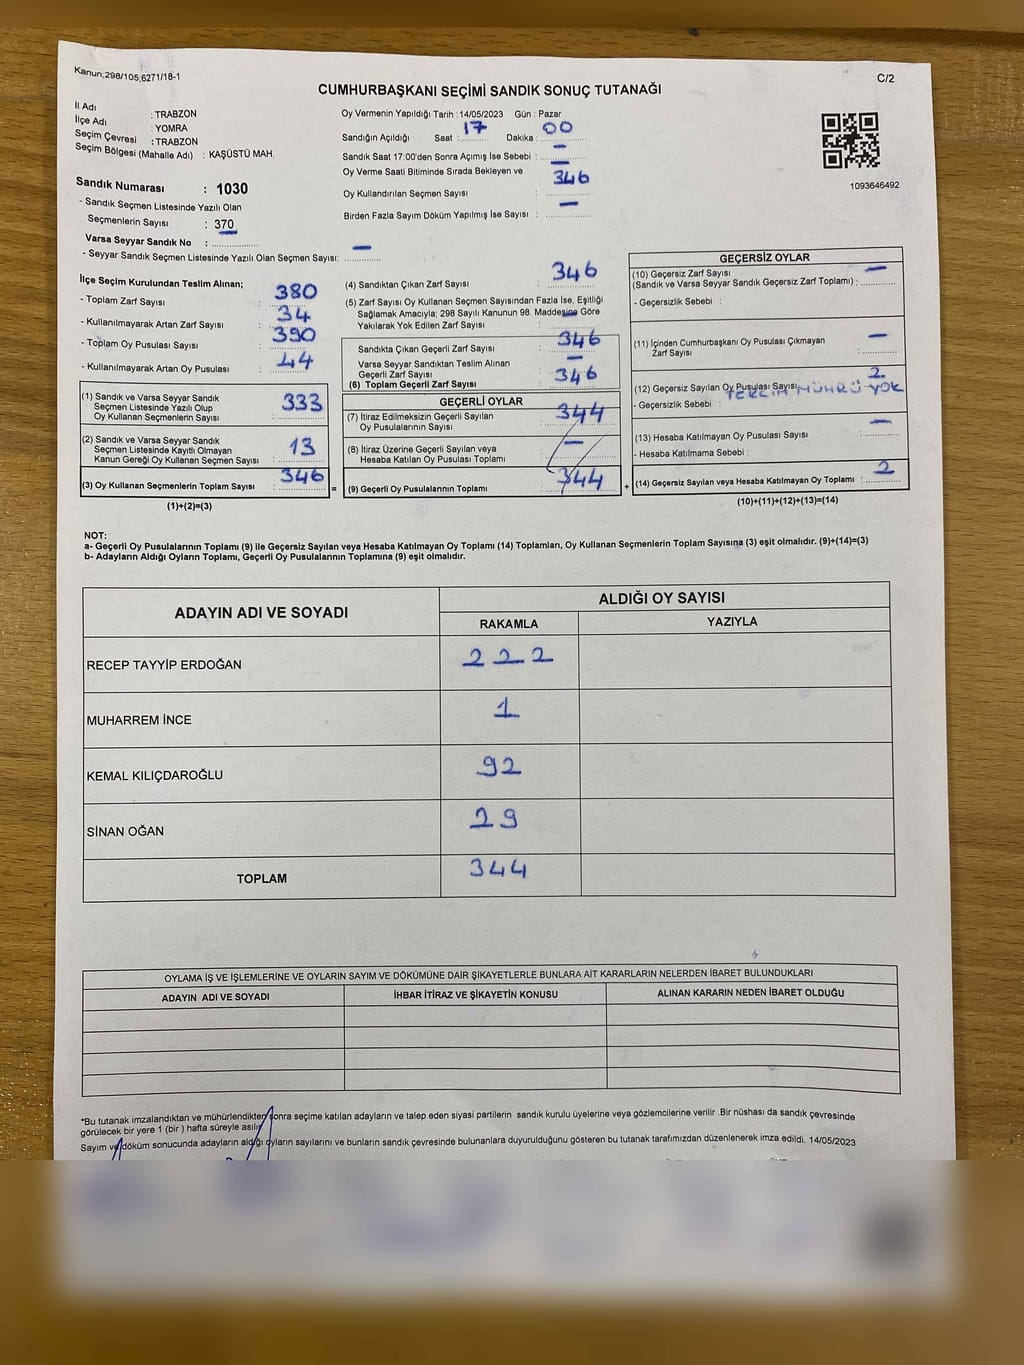 Kanun;298/105,6271/18-1
C/2
CUMHURBAŞKANI SEÇİMİ SANDIK SONUÇ TUTANAĞI
İl Adı : TRABZON
İlçe Adı : YOMRA
Seçim Çevresi : TRABZON
Seçim Bölgesi (Mahalle Adı) : KAŞÜSTÜ MAH.
Sandık Numarası : 1030
- Sandık Seçmen Listesinde Yazılı Olan
Seçmenlerin Sayısı : 370
Varsa Seyyar Sandık No :
- Seyyar Sandık Seçmen Listesinde Yazılı Olan Seçmen Sayısı: —
Oy Vermenin Yapıldığı Tarih : 14/05/2023 Gün : Pazar
Sandığın Açıldığı Saat : 17 Dakika : 00
Sandık Saat 17:00'den Sonra Açımış İse Sebebi : —
Oy Verme Saati Bitiminde Sırada Bekleyen ve —
Oy Kullandırılan Seçmen Sayısı : 346
Birden Fazla Sayım Döküm Yapılmış İse Sayısı : —
1093646492
İlçe Seçim Kurulundan Teslim Alınan;
- Toplam Zarf Sayısı : 380
- Kullanılmayarak Artan Zarf Sayısı : 34
- Toplam Oy Pusulası Sayısı : 390
- Kullanılmayarak Artan Oy Pusulası : 44
(1) Sandık ve Varsa Seyyar Sandık
Seçmen Listesinde Yazılı Olup
Oy Kullanan Seçmenlerin Sayısı : 333
(2) Sandık ve Varsa Seyyar Sandık
Seçmen Listesinde Kayıtlı Olmayan
Kanun Gereği Oy Kullanan Seçmen Sayısı : 13
(3) Oy Kullanan Seçmenlerin Toplam Sayısı : 346
(1)+(2)=(3)
(4) Sandıktan Çıkan Zarf Sayısı : 346
(5) Zarf Sayısı Oy Kullanan Seçmen Sayısından Fazla İse, Eşitliği
Sağlamak Amacıyla; 298 Sayılı Kanunun 98. Maddesine Göre
Yakılarak Yok Edilen Zarf Sayısı : —
Sandıkta Çıkan Geçerli Zarf Sayısı : 346
Varsa Seyyar Sandıktan Teslim Alınan
Geçerli Zarf Sayısı : —
(6) Toplam Geçerli Zarf Sayısı : 346
GEÇERLİ OYLAR
(7) İtiraz Edilmeksizin Geçerli Sayılan
Oy Pusulalarının Sayısı : 344
(8) İtiraz Üzerine Geçerli Sayılan veya
Hesaba Katılan Oy Pusulası Toplamı : —
= (9) Geçerli Oy Pusulalarının Toplamı : 344
GEÇERSİZ OYLAR
(10) Geçersiz Zarf Sayısı
(Sandık ve Varsa Seyyar Sandık Geçersiz Zarf Toplamı) : —
- Geçersizlik Sebebi :
(11) İçinden Cumhurbaşkanı Oy Pusulası Çıkmayan
Zarf Sayısı : —
(12) Geçersiz Sayılan Oy Pusulası Sayısı : 2
- Geçersizlik Sebebi : TERCİH MÜHRÜ YOK
(13) Hesaba Katılmayan Oy Pusulası Sayısı : —
- Hesaba Katılmama Sebebi :
+ (14) Geçersiz Sayılan veya Hesaba Katılmayan Oy Toplamı : 2
(10)+(11)+(12)+(13)=(14)
NOT:
a- Geçerli Oy Pusulalarının Toplamı (9) ile Geçersiz Sayılan veya Hesaba Katılmayan Oy Toplamı (14) Toplamları, Oy Kullanan Seçmenlerin Toplam Sayısına (3) eşit olmalıdır. (9)+(14)=(3)
b- Adayların Aldığı Oyların Toplamı, Geçerli Oy Pusulalarının Toplamına (9) eşit olmalıdır.
ADAYIN ADI VE SOYADI ALDIĞI OY SAYISI
RAKAMLA YAZIYLA
RECEP TAYYİP ERDOĞAN 222
MUHARREM İNCE 1
KEMAL KILIÇDAROĞLU 92
SİNAN OĞAN 29
TOPLAM 344
OYLAMA İŞ VE İŞLEMLERİNE VE OYLARIN SAYIM VE DÖKÜMÜNE DAİR ŞİKAYETLERLE BUNLARA AİT KARARLARIN NELERDEN İBARET BULUNDUKLARI
ADAYIN ADI VE SOYADI İHBAR İTİRAZ VE ŞİKAYETİN KONUSU ALINAN KARARIN NEDEN İBARET OLDUĞU
*Bu tutanak imzalandıktan ve mühürlendikten sonra seçime katılan adayların ve talep eden siyasi partilerin sandık kurulu üyelerine veya gözlemcilerine verilir .Bir nüshası da sandık çevresinde
görülecek bir yere 1 (bir ) hafta süreyle asılır
Sayım ve döküm sonucunda adayların aldığı oyların sayılarını ve bunların sandık çevresinde bulunanlara duyurulduğunu gösteren bu tutanak tarafımızdan düzenlenerek imza edildi. 14/05/2023